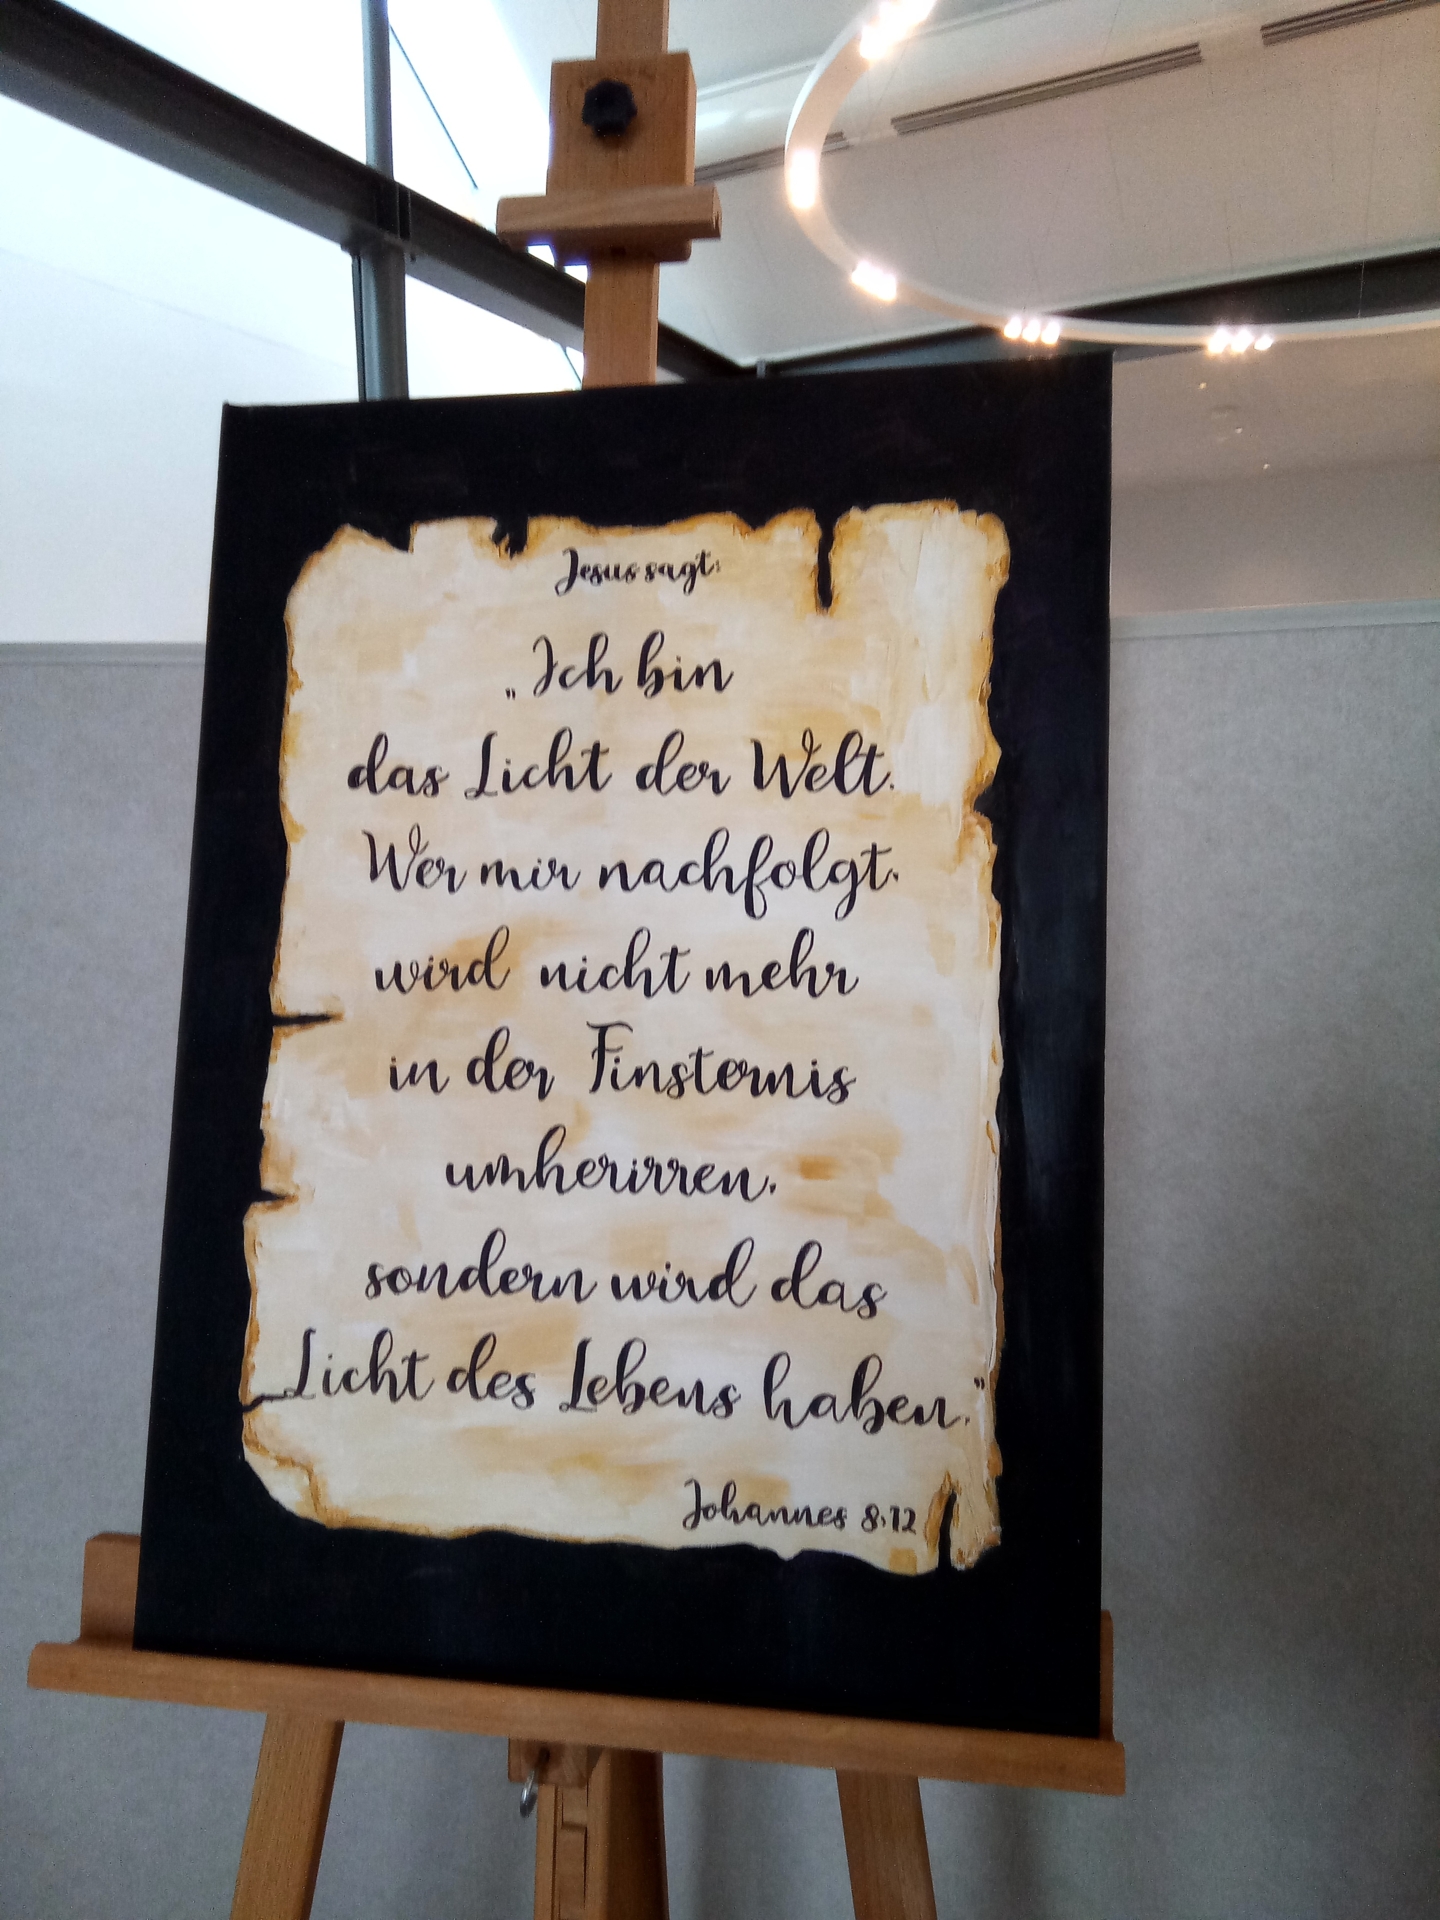 Jesus sagt:
„Ich bin
das Licht der Welt.
Wer mir nachfolgt,
wird nicht mehr
in der Finsternis
umherirren,
sondern wird das
Licht des Lebens haben."
Johannes 8,12